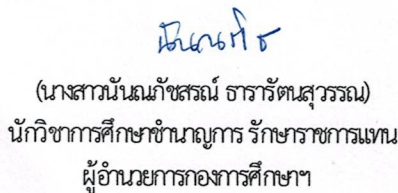 (นางสาวนันณภัชสรณ์ ธารารัตนสุวรรณ)
นักวิชาการศึกษาชำนาญการ รักษาราชการแทน
ผู้อำนวยการกองการศึกษาฯ